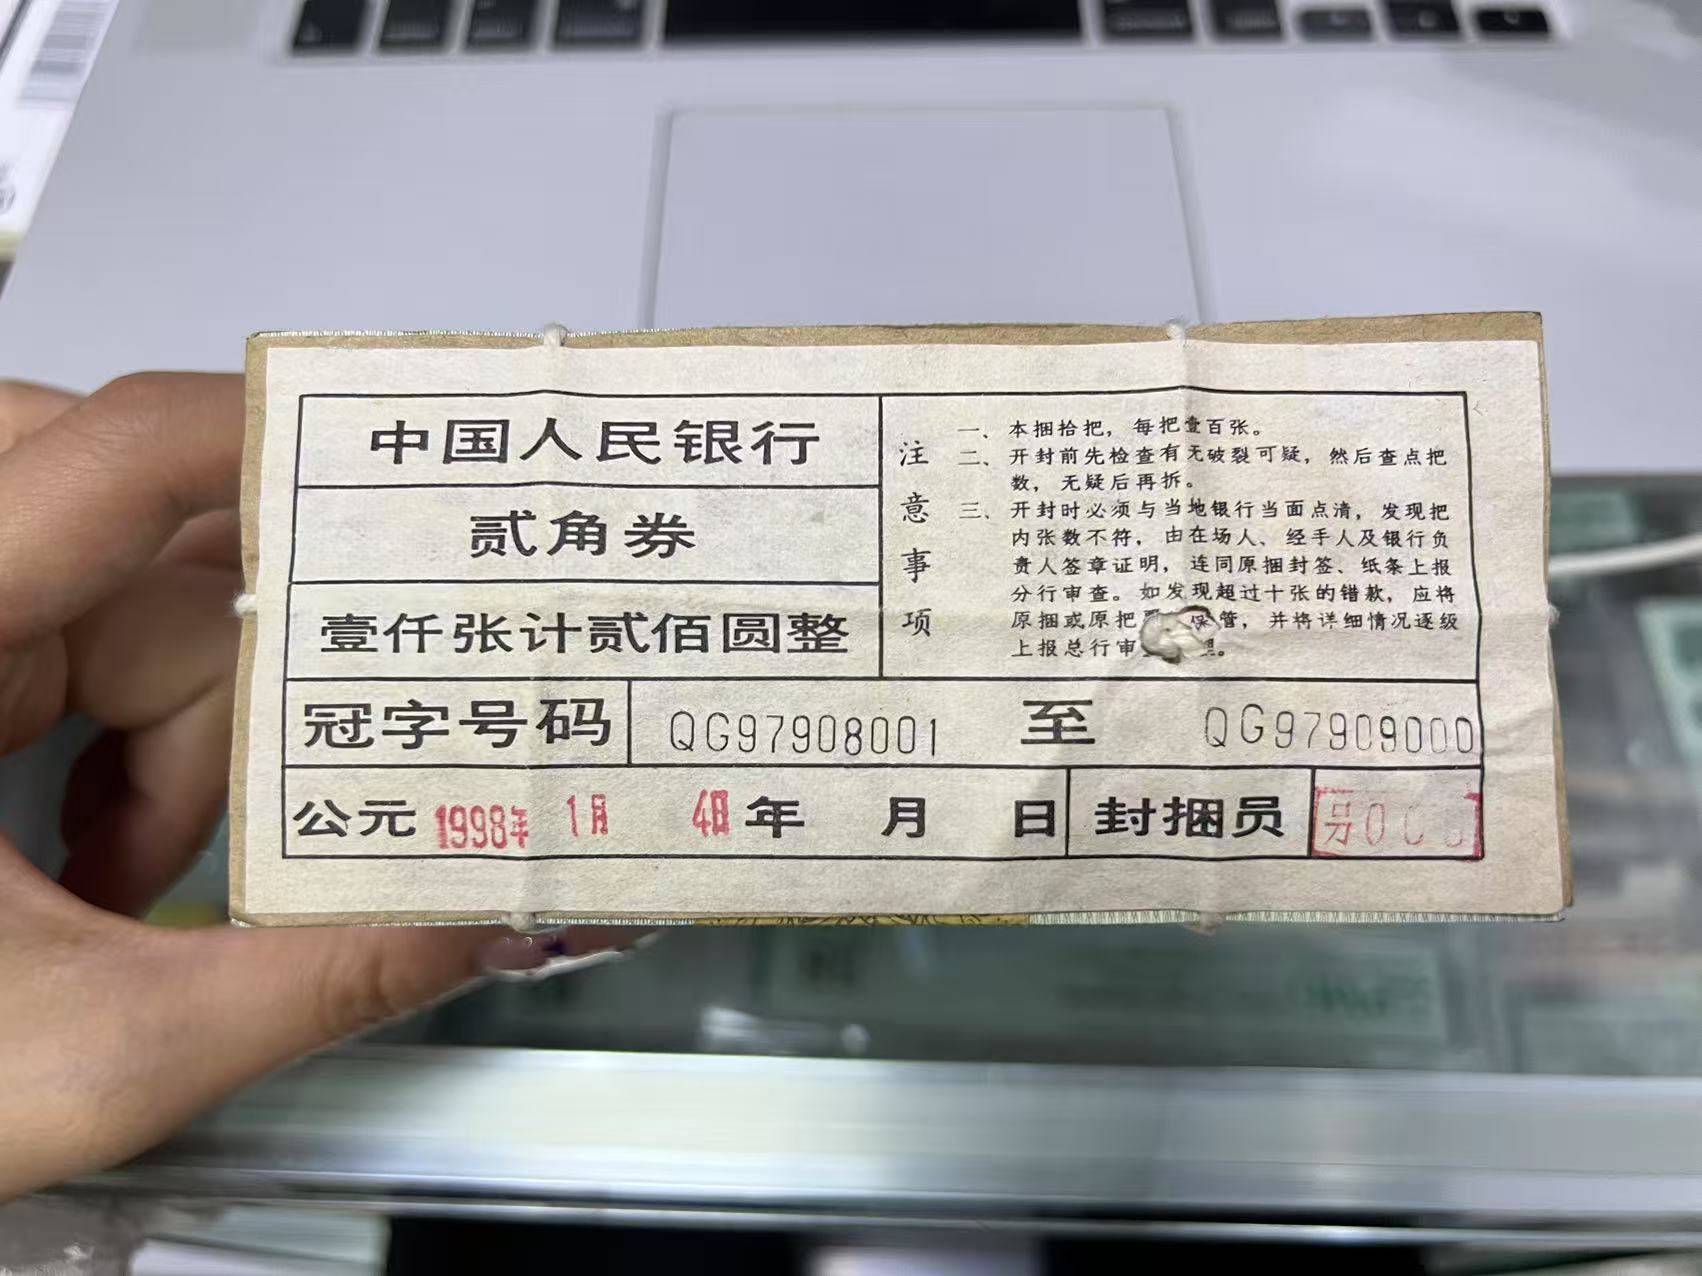 中国人民银行
贰角券
壹仟张计贰佰圆整
注意事项
一、本捆拾把，每把壹百张。
二、开封前先检查有无破裂可疑，然后查点把
数，无疑后再拆。
三、开封时必须与当地银行当面点清，发现把
内张数不符，由在场人、经手人及银行负
责人签章证明，连同原捆封签、纸条上报
分行审查。如发现超过十张的错款，应将
原捆或原把 保管，并将详细情况逐级
上报总行审 。
冠字号码 QG97908001 至 QG97909000
公元 1998年 1月 4日 年 月 日 封捆员